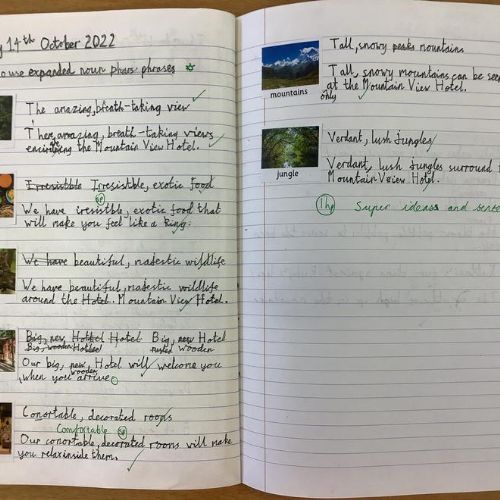 y 14th October 2022
o use expanded noun phras phrases
The amazing, breath-taking view
The amazing, breath-taking views
the Mountain View Hotel.
Irresistible Irresistible, exotic food
sp
We have irresistible, exotic food that
will make you feel like a king.
We have beautiful, majestic wildlife
We have beautiful, majestic wildlife
around the Hotel. Mountain View Hotel.
Big, new Hotel Hotel Big, new Hotel
Big, wooden Hotel rusted wooden
Our big, new, Hotel will welcome you
wooden
when you arrive.
Conortable, decorated rooms
Comfortable sp
Our conortable, decorated rooms will make
you relax inside them.
Tall, snowy peaks mountains
Tall, snowy mountains can be see
at the Mountain View Hotel.
only
mountains
Verdant, lush Jungles
Verdant, lush Jungles surround t
Mountain View Hotel.
jungle
1hp Super ideas and sente